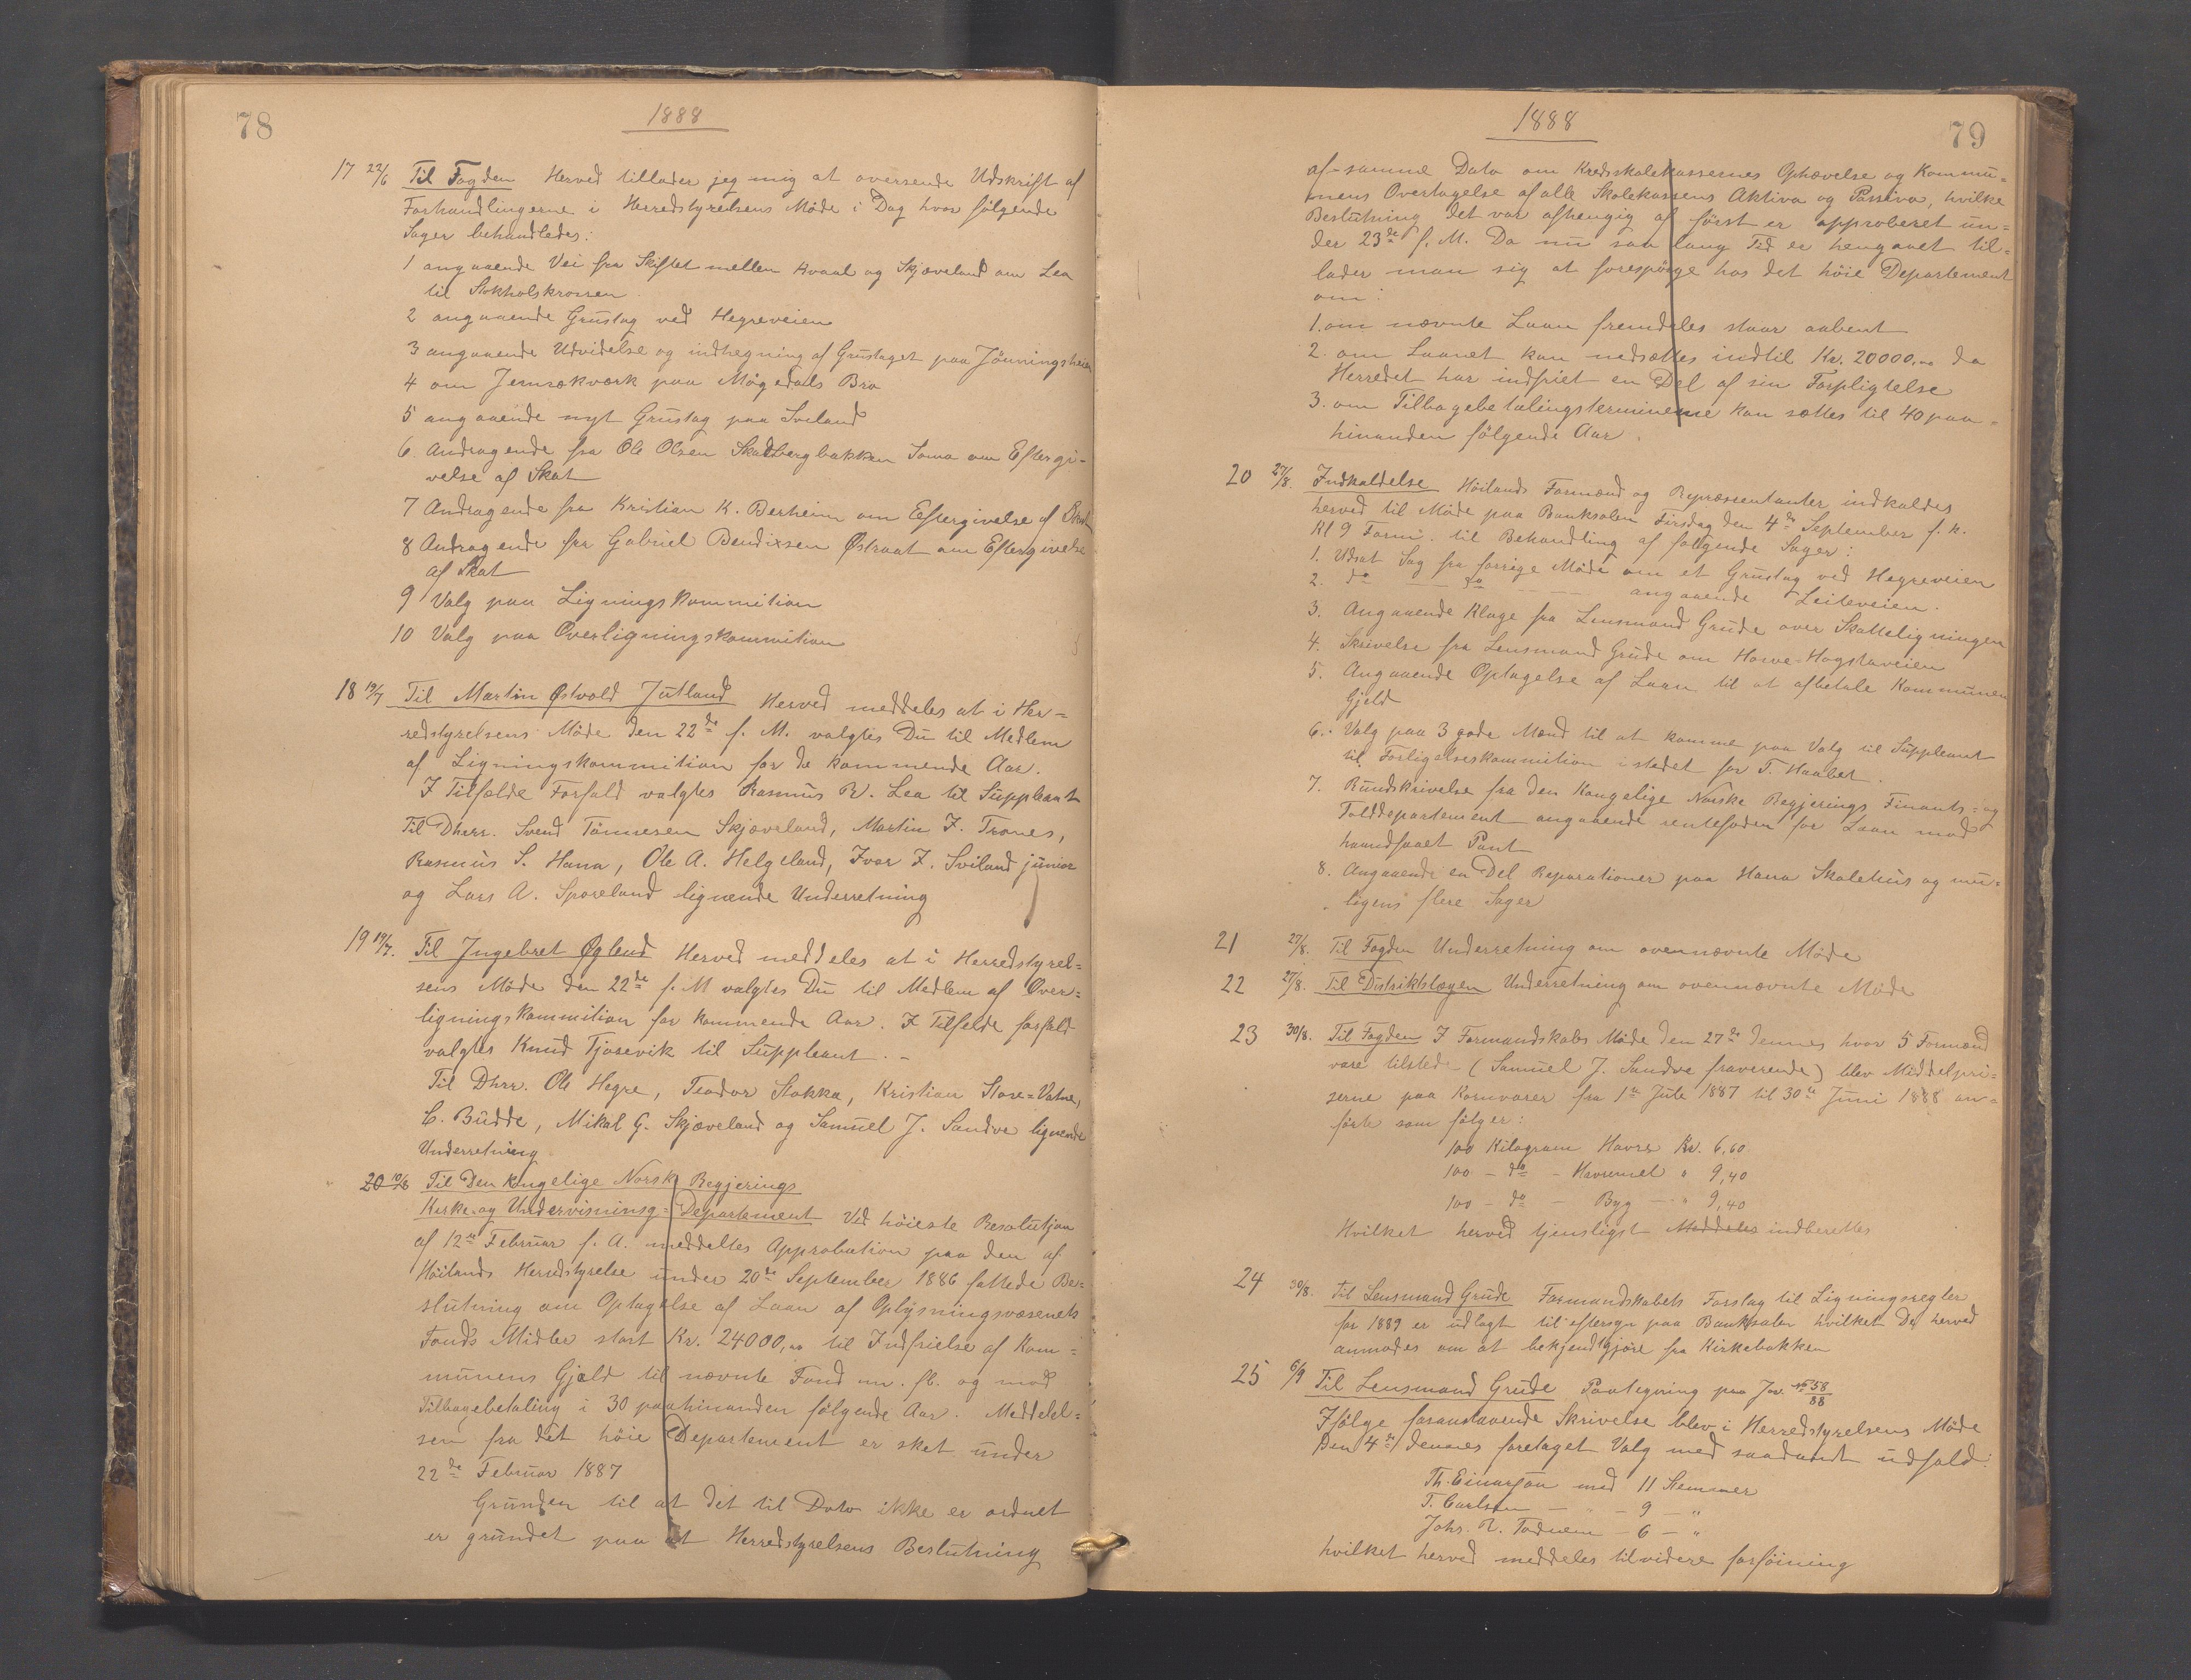 78
1888
17 22/6 Til Fogden Herved tillader jeg mig at oversende Udskrift af
Forhandlingerne i Herredstyrelsens Møde i Dag hvor følgende
Sager behandledes:
1 angaaende Vei fra Skiftet mellem Hvaal og Skjæveland om Lea
til Stokholskrossen
2 angaaende Grustag ved Hegreveien
3 angaaende Udvidelse og indhegning af Grustaget paa Jønningsheien
4 om Jernrækværk paa Møgedals Bro
5 angaaende nyt Grustag paa Sviland
6. Andragende fra Ole Olsen Skadbergbakken Soma om Eftergi-
velse af Skat
7 Andragende fra Kristian K. Berheim om Eftergivelse af Skat
8 Andragende fra Gabriel Bendixsen Østraat om Eftergivelse
af Skat
9 Valg paa Ligningskommition
10 Valg paa Overligningskommition
18 19/7 Til Martin Østvold Jutland Herved meddeles at i Her=
redstyrelsens Møde den 22de f. M. valgtes Du til Medlem
af Ligningskommition for de kommende Aar.
I Tilfælde Forfald valgtes Rasmus R. Lea til Suppleant
Til Dherr. Svend Tønnesen Skjæveland, Martin J. Trones,
Rasmus S. Hana, Ole A. Helgeland, Ivar I. Sviland junior
og Lars A. Sporeland lignende Underretning
19 19/7. Til Ingebret Øglend Herved meddeles at i Herredstyrel=
sens Møde den 22de f. M valgtes Du til Medlem af Over=
ligningskommition for kommende Aar. I Tilfelde forfald
valgtes Knud Tjosevik til Suppleant. -
Til Dhrr. Ole Hegre, Teodor Stokka, Kristian Store=Vatne,
C. Budde, Mikal G. Skjæveland og Samuel J. Sandve lignende
Underretning
20 10/8 Til Den kongelige Norske Regjerings
Kirke og Undervisninsg=Departement Ved høieste Resolutjon
af 12te Februar f. A. meddeltes Approbation paa den af
Høilands Herredstyrelse under 20de September 1886 fattede Be=
slutning om Optagelse af Laan af Oplysningsvæsenets
Fonds Midler stort Kr. 24000,00 til Indfrielse af Kom=
munens Gjæld til nævnte Fond m. fl. og mod
Tilbagebetaling i 30 paahinanden følgende Aar. Meddelel=
sen fra det høie Departement er sket under
22de Februar 1887
Grunden til at det til Dato ikke er ordnet
er grundet paa at Herredstyrelsens Beslutning
1888
79
af samme Dato om Kredsskolekassernes Ophævelse og Kommu=
nens Overtagelse af alle Skolekassens Aktiva og Passiva, hvilke
Beslutning det var afhengig af først er approberet un=
der 23de f. M. Da nu saa lang Tid er hengaaet til=
lader man sig at forespørge hos det høie Departement
om:
1. om nævnte Laan fremdeles staar aabent
2. om Laanet kan nedsættes indtil Kr. 20000,00 da
Herredet har indfriet en Del af sin Forpligtelse
3. om Tilbagebetalingsterminerne kan sættes til 40 paa=
hinanden følgende Aar.
20 27/8. Indkaldelse Høilands Formænd og Repræsentanter indkaldes
herved til Møde paa Banksalen Tirsdag den 4de September f. k.
Kl 9 Form. til Behandling af følgende Sager:
1. Udsat Sag fra forrige Møde om et Grustag ved Hegreveien
2. do — do — — angaaende Leiteveien.
3. Angaaende Klage fra Lensmand Grude over Skatteligningen
4. Skrivelse fra Lensmand Grude om Hove-Hogstaveien
5. Angaaende Optagelse af Laan til at afbetale Kommunens
Gjeld
6. Valg paa 3 gode Mænd til at komme paa Valg til Suppleant
til Forligelseskommition istedet for T. Haabet.
7. Rundskrivelse fra den Kongelige Norske Regjerings Finants- og
Tolddepartement angaaende rentefoden for Laan mod
haandfaaet Pant
8. Angaaende en Del Reparationer paa Hana Skolehus og mu=
ligens flere Sager
21 27/8. Til Fogden Underretning om ovennævnte Møde
22 27/8. Til Distriktslægen Underretning om ovennævnte Møde
23 30/8. Til Fogden I Formandskabs Møde den 27de dennes hvor 5 Formænd
vare tilstede (Samuel J. Sandve fraverende) blev Middelpri=
serne paa Kornvarer fra 1te Jule 1887 til 30te Juni 1888 an=
førte som følger:
100 Kilogram Havre Kr. 6,60
100 — do — Havremel " 9,40
100 — do — Byg — " 9,40
Hvilket herved tjensligst Meddeles indberettes
24 30/8. Til Lensmand Grude Formandskabets Forslag til Ligningsregler
for 1889 er udlagt til eftersyn paa Banksalen hvilket De herved
anmodes om at bekjendtgjøre fra Kirkebakken
25 6/9 Til Lensmand Grude Paategning paa Jor. No 58/88
Ifølge foranstaaende Skrivelse blev i Herredstyrelsens Møde
Den 4de dennes foretaget Valg med saadant udfald:
Th. Einarsen med 11 Stemmer
T. Carlsen — " — 9 — "
Johs. R. Todnem — 6 — "
hvilket herved meddeles tilvidere forføining